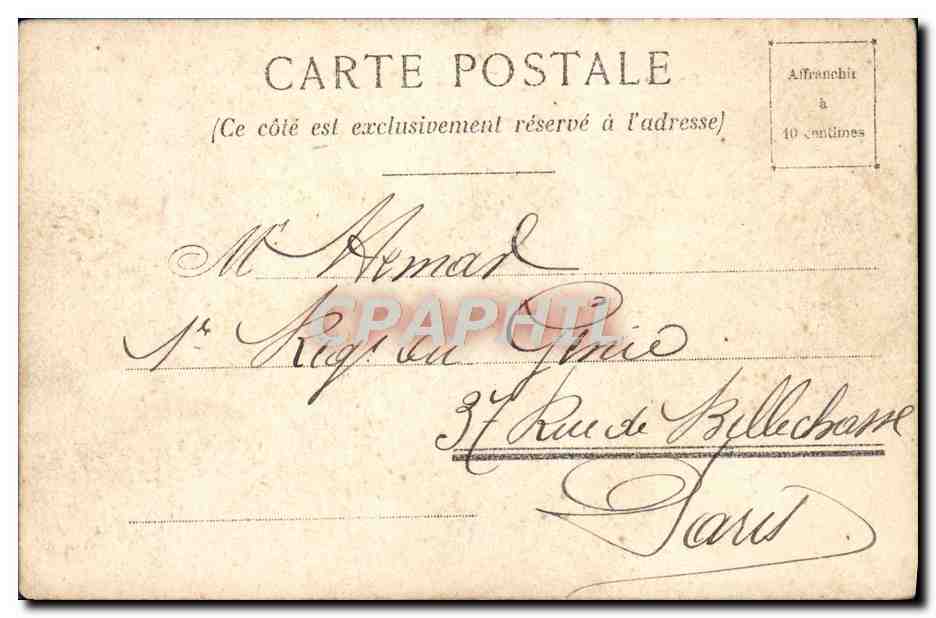 CARTE POSTALE
(Ce côté est exclusivement réservé à l'adresse)
Affranchir
à
10 centimes
Mr Hemard
1er Regt du Génie
CPAPHIL
37 Rue de Bellechasse
Paris